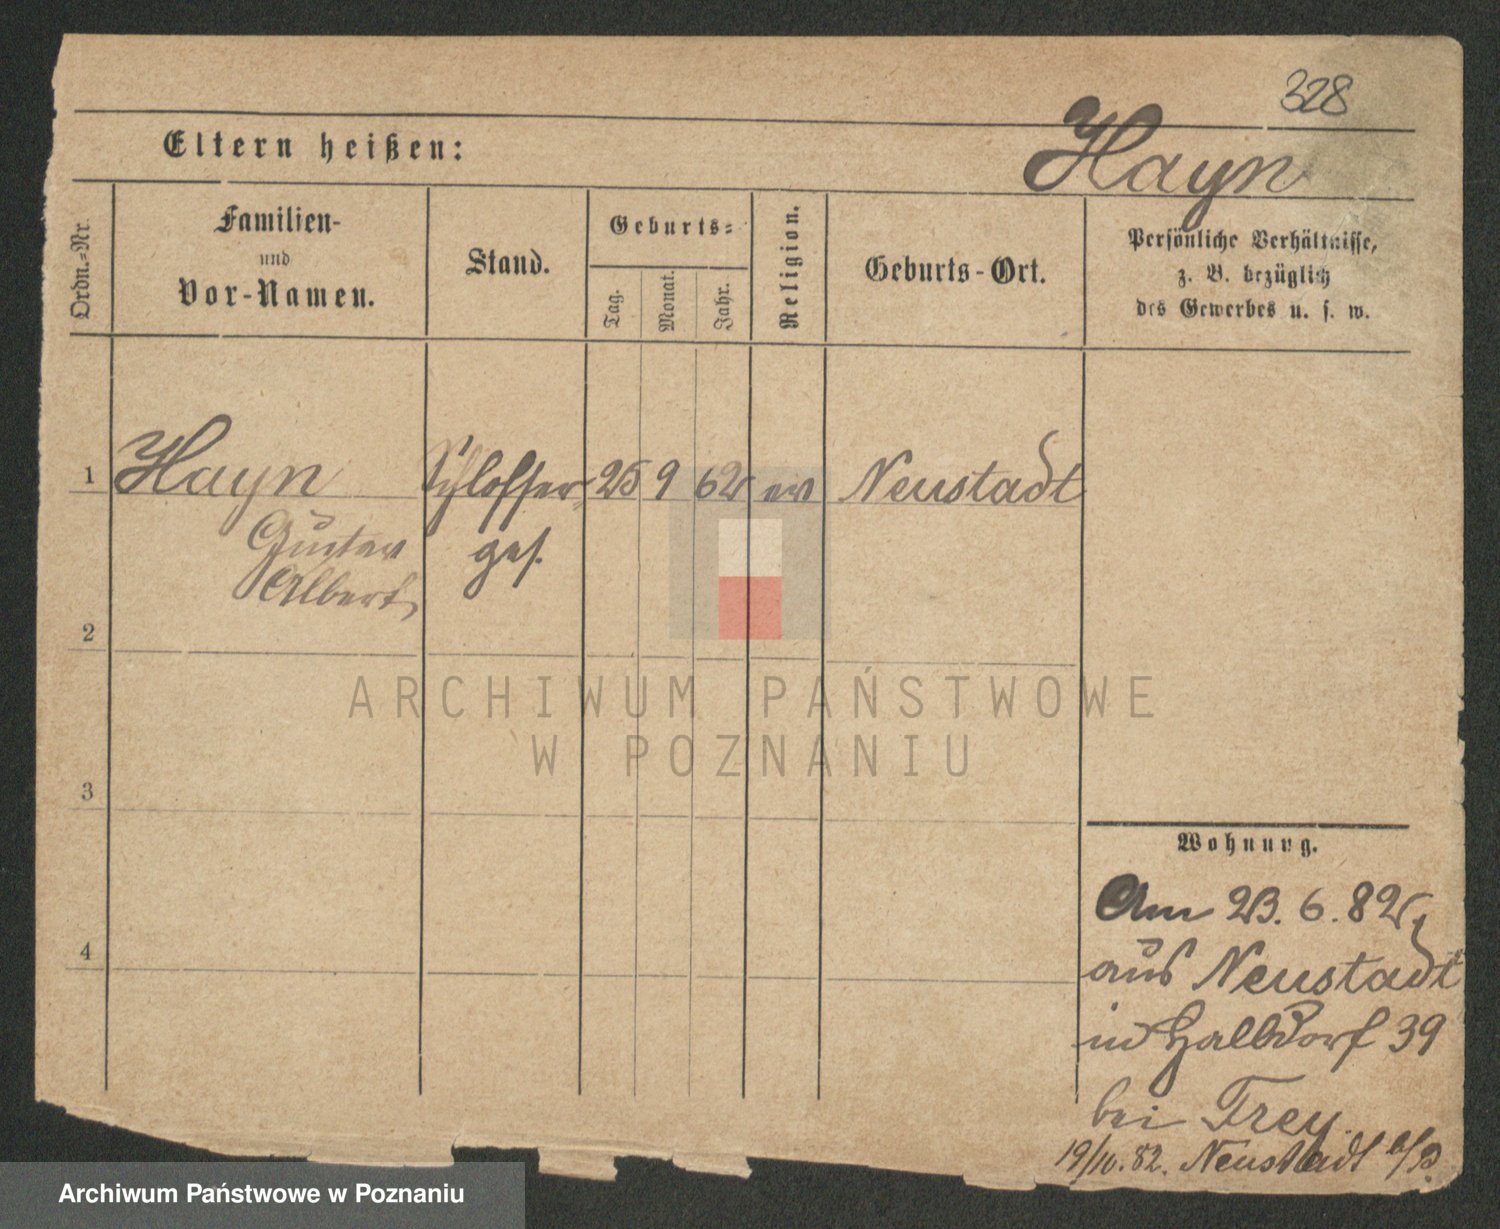 328
Hayn
Eltern heißen:
Ordn.-Nr.
Familien-
und
Vor-Namen.
Stand.
Geburts-
Tag.
Monat.
Jahr.
Religion.
Geburts-Ort.
Persönliche Verhältnisse,
z. B. bezüglich
des Gewerbes u. s. w.
1 Hayn Schlosser- 25 9 62 ev Neustadt
Gustav ges.
Albert
2
3
4
Wohnung.
Am 23. 6. 82
aus Neustadt
in Halbdorf 39
bei Trey
19/10. 82. Neustadt
ARCHIWUM PAŃSTWOWE
W POZNANIU
Archiwum Państwowe w Poznaniu